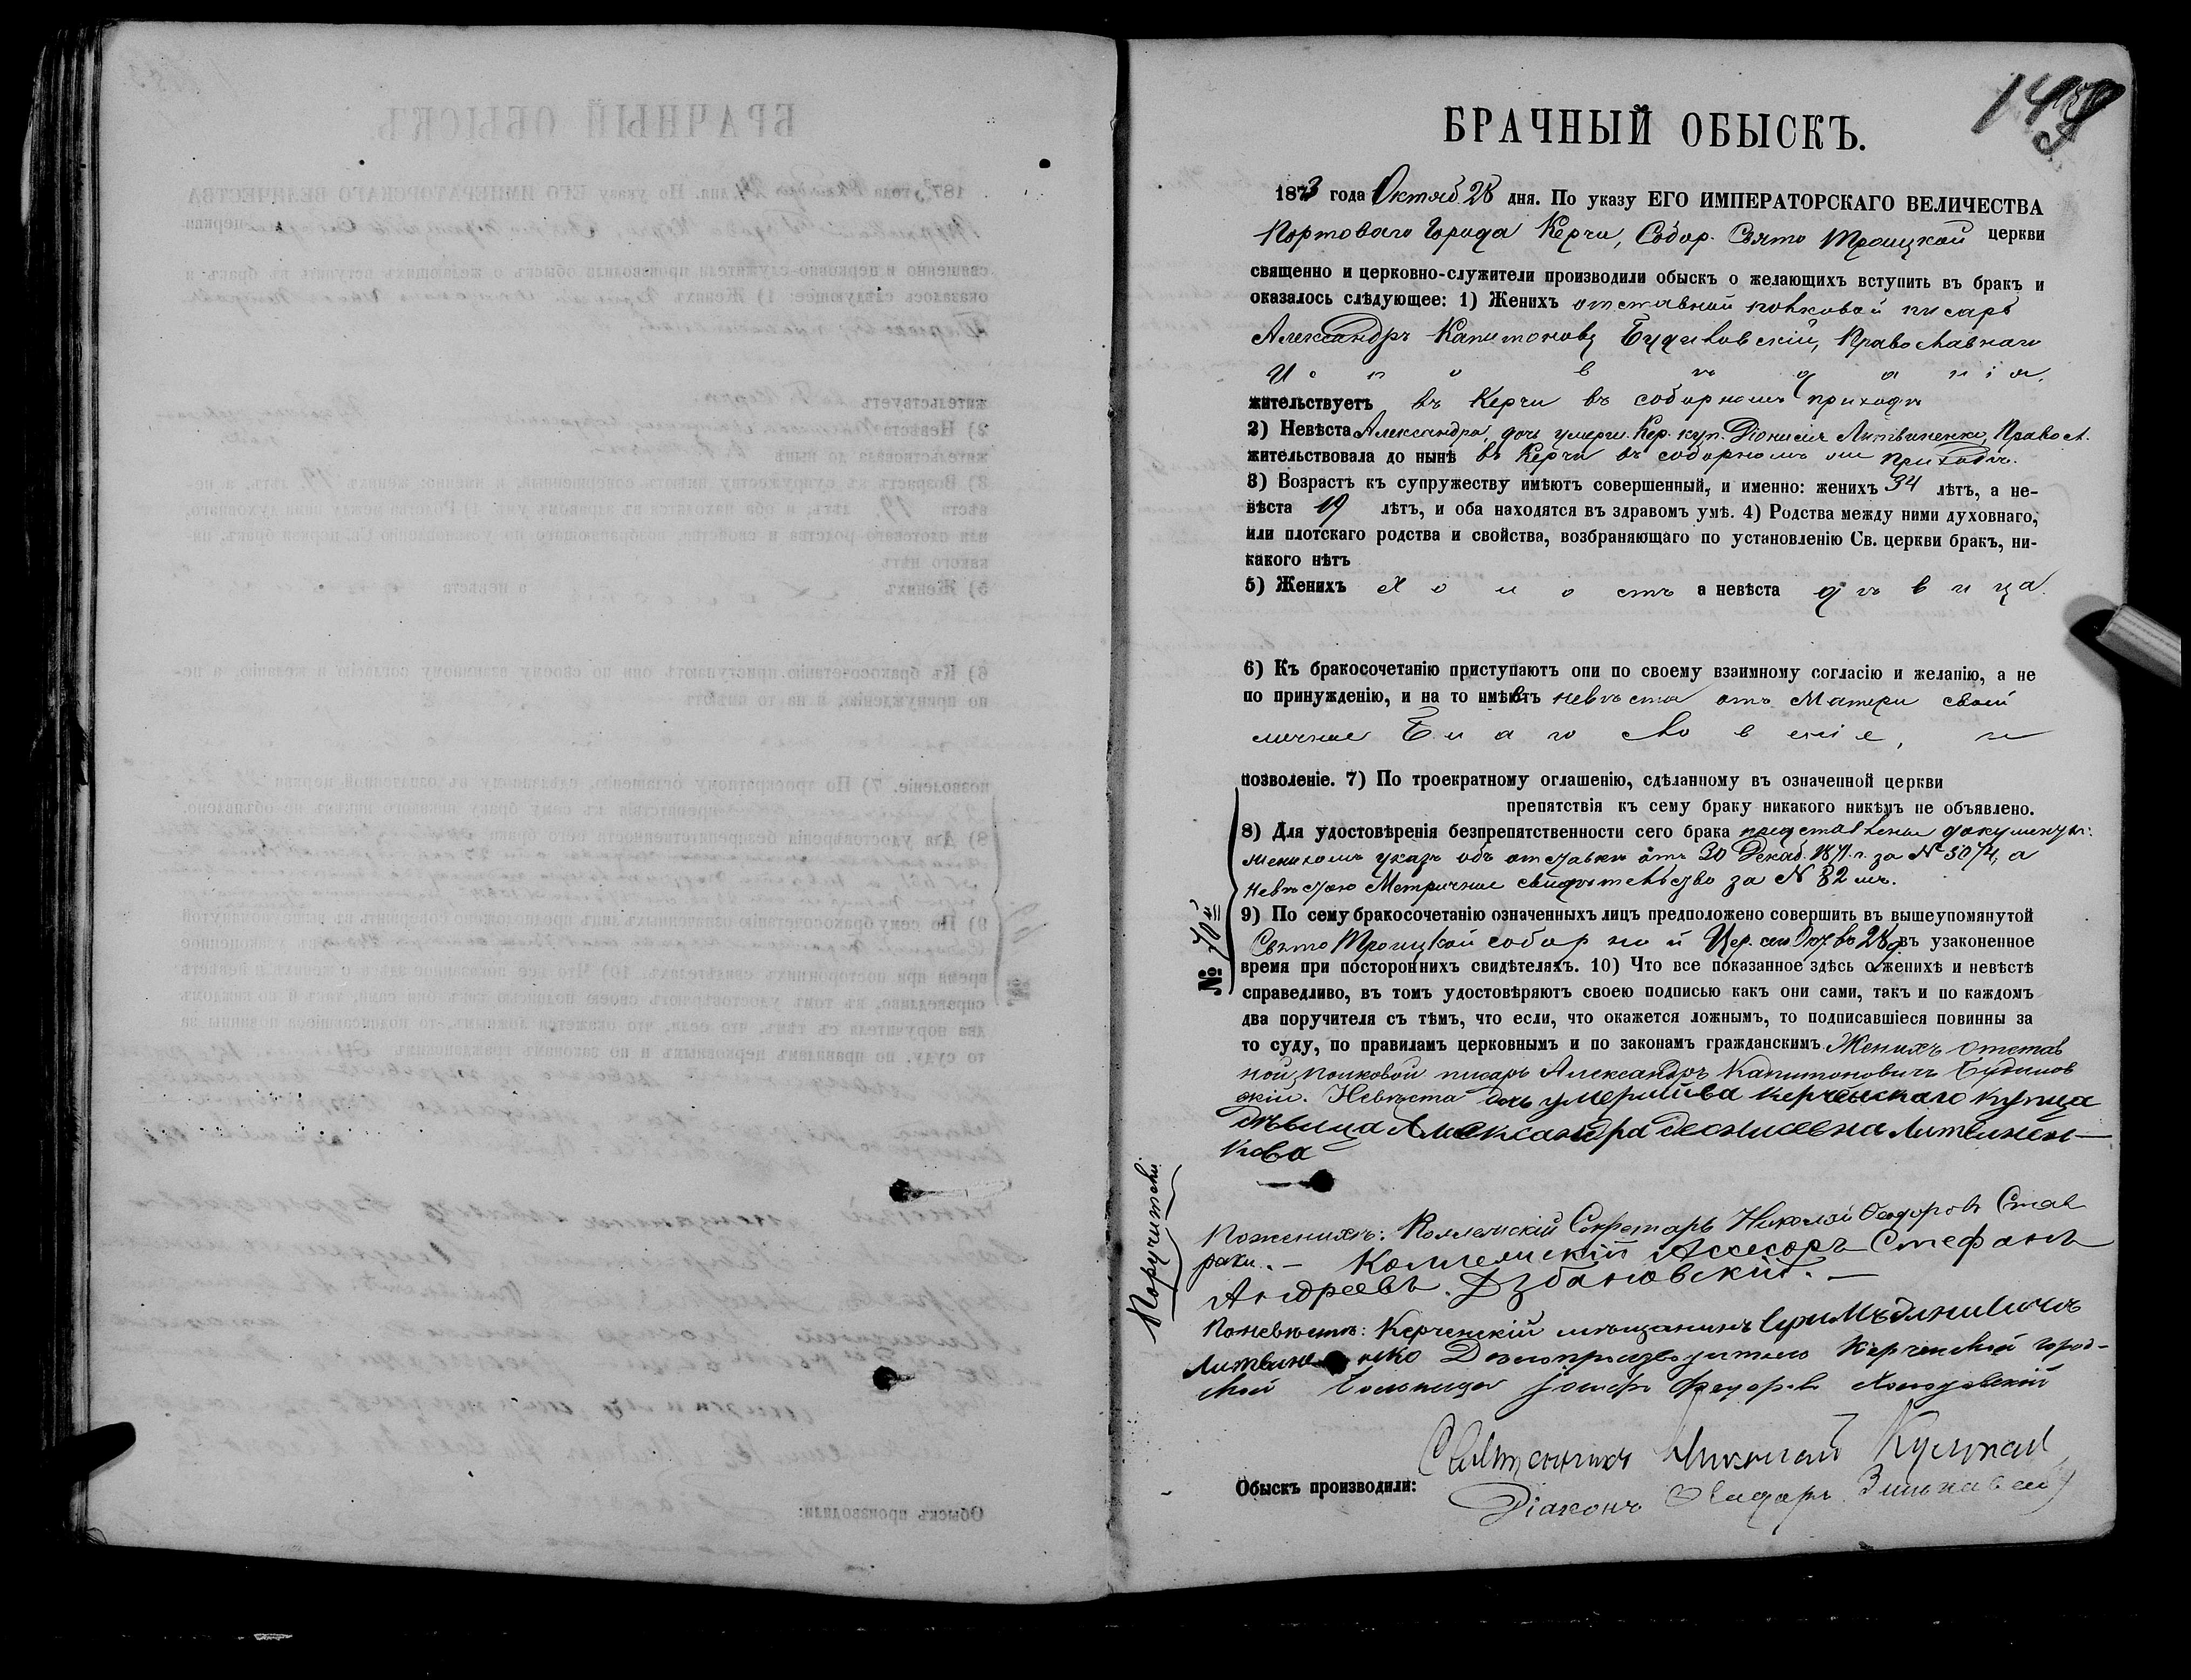 БРАЧНЫЙ ОБЫСКЪ.
1873 года Октяб. 28 дня. По указу ЕГО ИМПЕРАТОРСКАГО ВЕЛИЧЕСТВА
Портоваго Города Керчи, Собор. Свято Троицкой церкви
священно и церковно-служители производили обыскъ о желающихъ вступить въ бракъ и
оказалось слѣдующее: 1) Женихъ отставной полковой писарь
Александръ Капитоновъ Будиловскій, Православнаго
Исповѣданія,
жительствуетъ въ Керчи въ соборномъ приходѣ
2) Невѣста Александра, дочь умерш. Кер. куп. Діонисія Литвиненко, Правосл.
жительствовала до нынѣ въ Керчи въ соборномъ приходѣ.
3) Возрастъ къ супружеству имѣютъ совершенный, и именно: женихъ 34 лѣтъ, а не-
вѣста 19 лѣтъ, и оба находятся въ здравомъ умѣ. 4) Родства между ними духовнаго,
или плотскаго родства и свойства, возбраняющаго по установленію Св. церкви бракъ, ни-
какого нѣтъ
5) Женихъ холостъ а невѣста дѣвица.
6) Къ бракосочетанію приступаютъ они по своему взаимному согласію и желанію, а не
по принужденію, и на то имѣетъ невѣста отъ Матери своей
личное Благословеніе, и
позволеніе. 7) По троекратному оглашенію, сдѣланному въ означенной церкви
препятствія къ сему браку никакого никѣмъ не объявлено.
8) Для удостовѣренія безпрепятственности сего брака представлены документы:
женихомъ указъ объ отставкѣ отъ 30 Декаб. 1871 г. за № 5074, а
невѣстою Метричное свидѣтельство за № 82 мъ.
9) По сему бракосочетанію означенныхъ лицъ предположено совершить въ вышеупомянутой
Свято Троицкой соборной Цер. сего Окт. въ 28 д. въ узаконенное
время при постороннихъ свидѣтеляхъ. 10) Что все показанное здѣсь о женихѣ и невѣстѣ
справедливо, въ томъ удостовѣряютъ своею подписью какъ они сами, такъ и по каждомъ
два поручителя съ тѣмъ, что если, что окажется ложнымъ, то подписавшіеся повинны за
то суду, по правиламъ церковнымъ и по законамъ гражданскимъ. Женихъ отстав
ной полковой писарь Александръ Капитоновичъ Будилов
скій. Невѣста дочь умершива керченскаго купца
дѣвица Александра деонисевна Литвинен-
кова
№ 70й
Поручители
По женихѣ: Коллежскій Секретарь Николай Федоровъ Став
раки. — Коллежскій Асесоръ Стефанъ
Андреевъ Дзбановскій. —
По невѣстѣ: Керченскій мѣщанинъ
Литвиненко Дѣлопроизводитель Керченской город-
ской больницы Іосифъ Федоровъ
Обыскъ производили: Священникъ Николай
Діаконъ